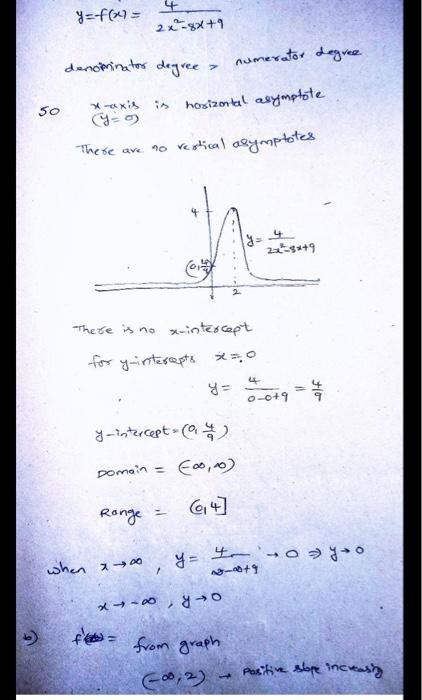 y=f(x) = 4/(2x²-8x+9)
denominator degree > numerator degree
so x-axis is horizontal asymptote
(y=0)
There are no vertical asymptotes
4
y= 4/(2x²-8x+9)
(0,4/9)
2
There is no x-intercept
for y-intercepts x=0
y= 4/(0-0+9) = 4/9
y-intercept = (0, 4/9)
Domain = (-∞,∞)
Range = (0,4]
when x→∞, y= 4/(∞-∞+9) → 0 ⇒ y→0
x→-∞, y→0
b) = from graph
(-∞,2) → Positive slope increasing